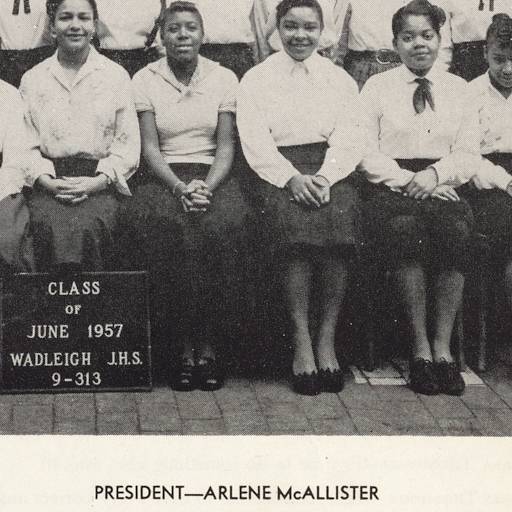 CLASS
OF
JUNE 1957
WADLEIGH J.H.S.
9-313
PRESIDENT—ARLENE McALLISTER